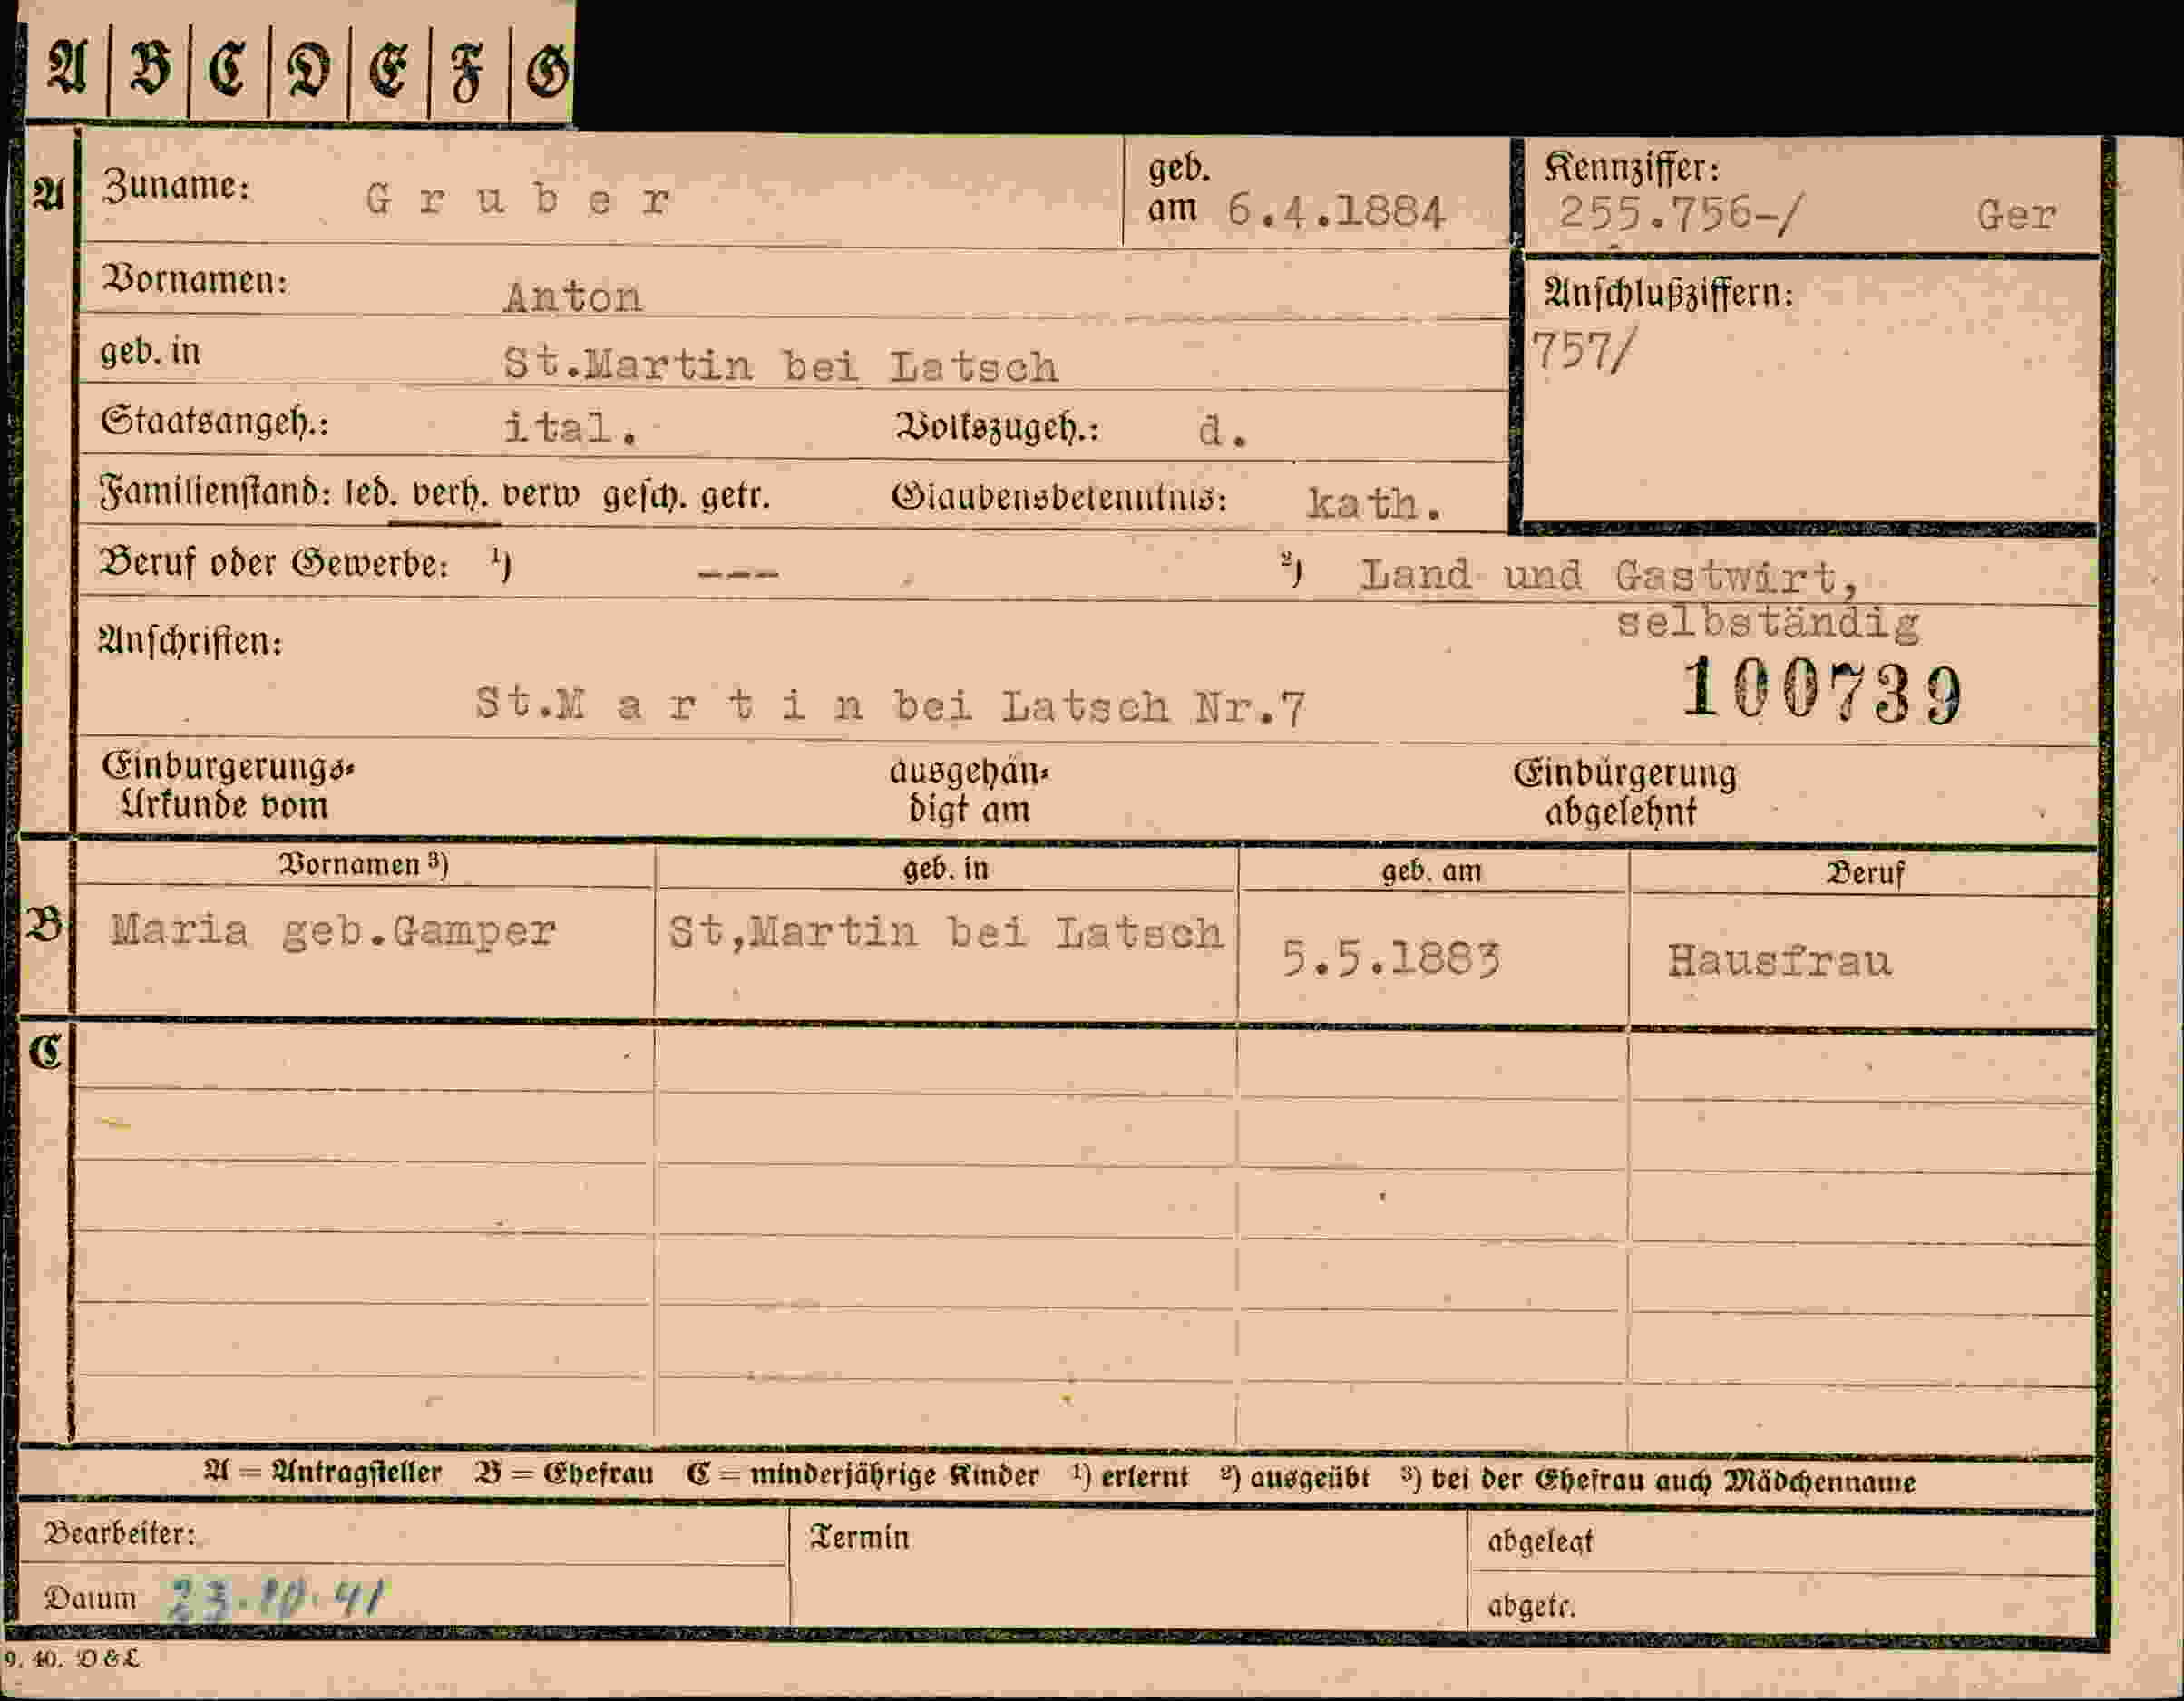 A B C D E F G
A Zuname: Gruber geb. am 6.4.1884 Kennziffer: 255.756-/ Ger
Vornamen: Anton Anschlußziffern:
geb. in St.Martin bei Latsch 757/
Staatsangeh.: ital. Volkszugeh.: d.
Familienstand: led. verh. verw gesch. getr. Glaubensbekenntnis: kath.
Beruf oder Gewerbe: ¹) --- ²) Land und Gastwirt,
selbständig
Anschriften:
St.Martin bei Latsch Nr.7 100739
Einbürgerungs-
Urkunde vom
ausgehän-
digt am
Einbürgerung
abgelehnt
Vornamen ³) geb. in geb. am Beruf
B Maria geb.Gamper St,Martin bei Latsch 5.5.1883 Hausfrau
C
A = Antragsteller B = Ehefrau C = minderjährige Kinder ¹) erlernt ²) ausgeübt ³) bei der Ehefrau auch Mädchenname
Bearbeiter: Termin abgelegt
Datum 23.10.41 abgetr.
9. 40. D & L